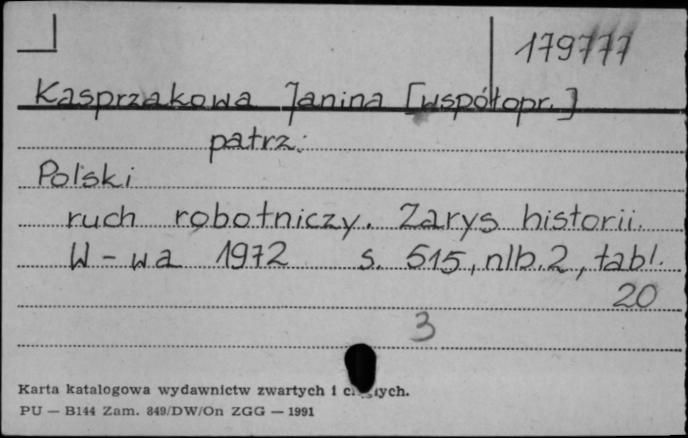 179777
Kasprzakowa Janina [współopr.]
patrz:
Polski
ruch robotniczy. Zarys historii.
W-wa 1972 s. 515, nlb. 2, tabl.
20
3
Karta katalogowa wydawnictw zwartych i
PU — B144 Zam. 849/DW/On ZGG — 1991